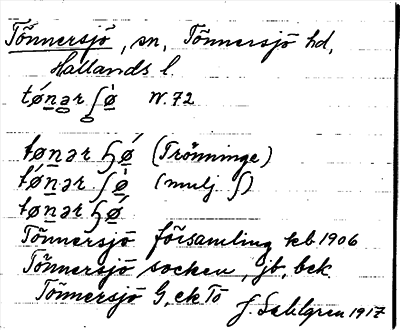 Tönnersjö, sn, Tönnersjö hd,
Hallands l.
tǿnər ʃø̀ W. 72
tønər ɧǿ (Trönninge)
tǿnər ʃø̀ (mulj. ʃ)
tønər ɧǿ
Tönnersjö församling kb 1906
Tönnersjö socken, jb, bck
Tönnersjö G, ek To
J. Sahlgren 1917